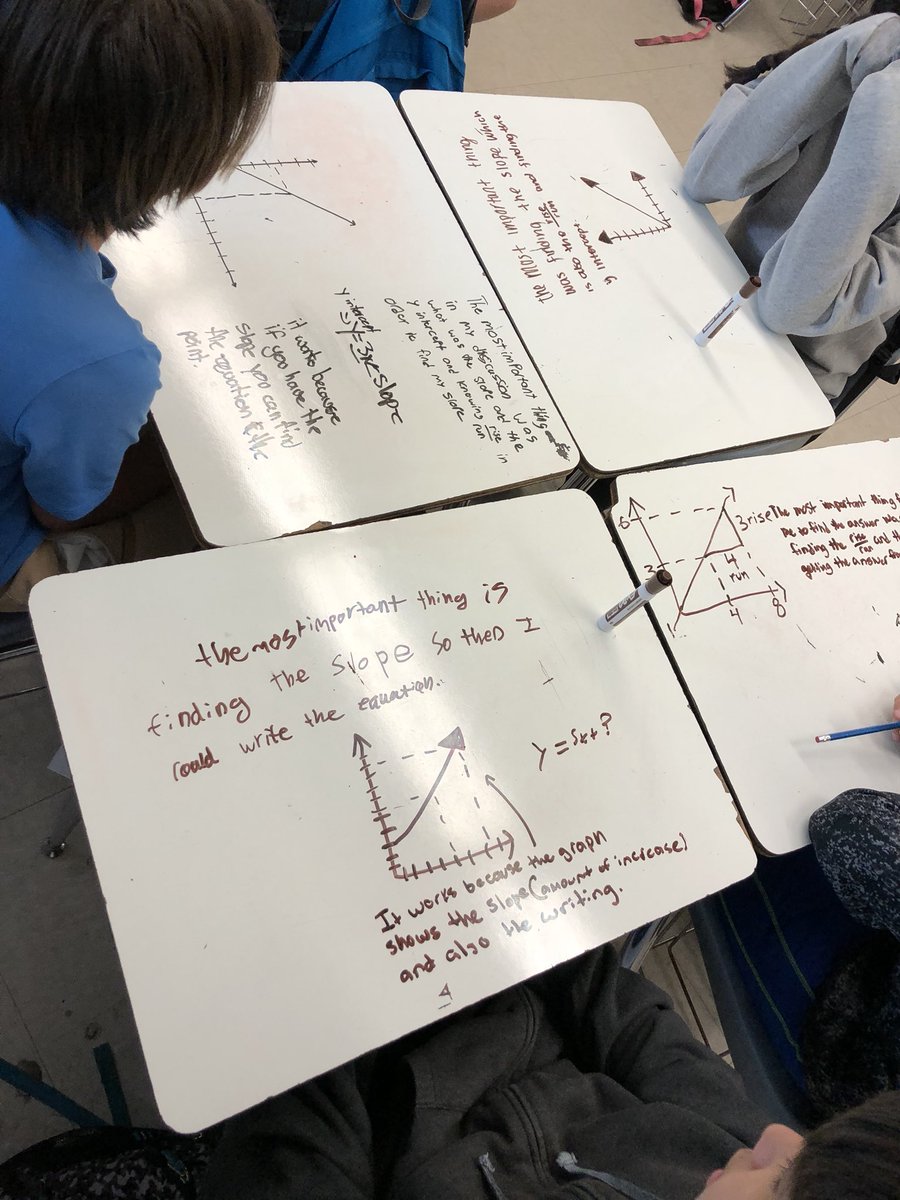 the most important thing
was finding the slope which
is also the rise/run and finding the
y intercept.
The most important thing
in my discussion was
what was the slope and the
y intercept and knowing rise/run in
order to find my slope
y intercept
slope
it works because
if you have the
slope you can find
the equation
point.
6
3
3 rise
4
run
4
8
The most important thing
me to find the answer
finding the rise/run and
getting the answer
the most important thing is
finding the slope so then I
could write the equation.
It works because the graph
shows the slope (amount of increase)
and also the writing.